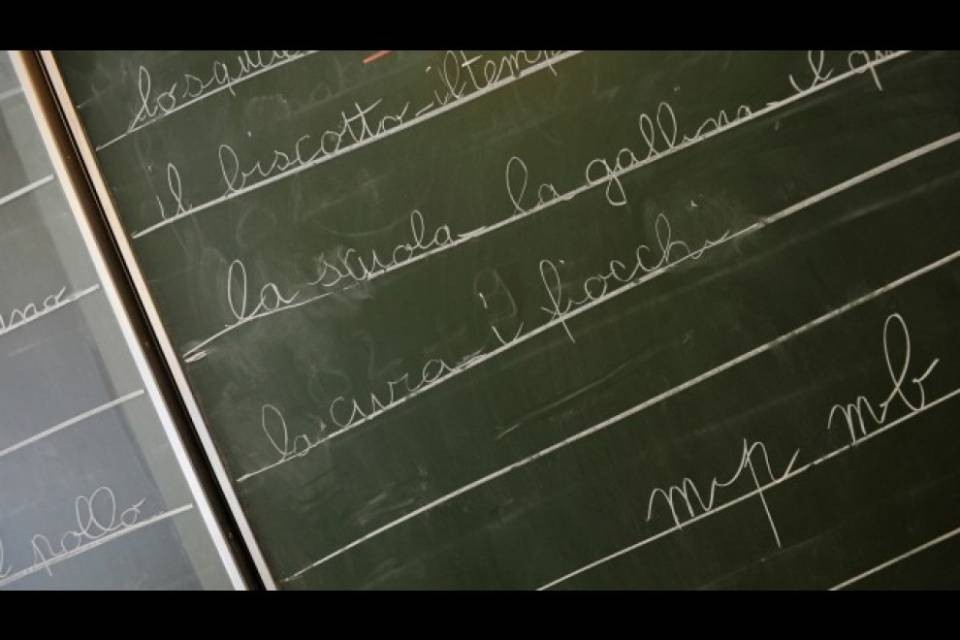 il biscotto - il temp
la scuola - la gallina - il qu
la cura - i fiocchi
mp mb
pollo